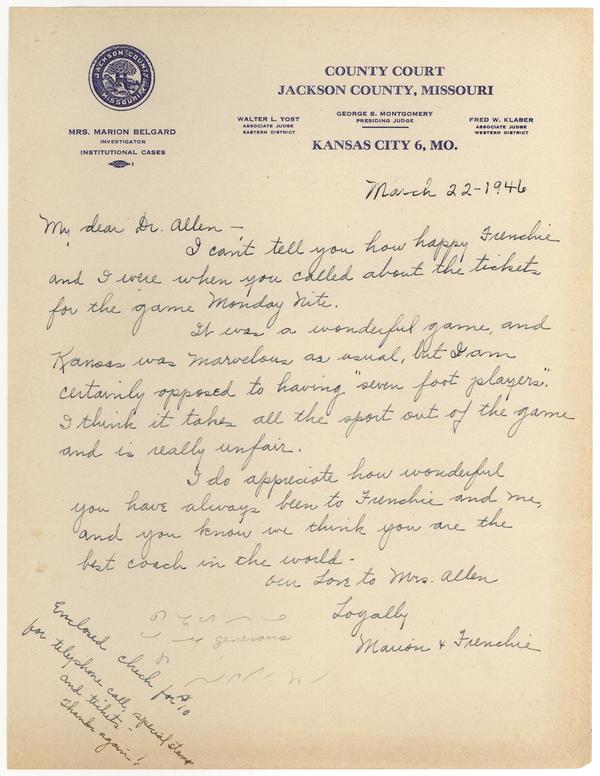 JACKSON COUNTY
MISSOURI
COUNTY COURT
JACKSON COUNTY, MISSOURI
MRS. MARION BELGARD
INVESTIGATOR
INSTITUTIONAL CASES
WALTER L. YOST
ASSOCIATE JUDGE
EASTERN DISTRICT
GEORGE S. MONTGOMERY
PRESIDING JUDGE
FRED W. KLABER
ASSOCIATE JUDGE
WESTERN DISTRICT
KANSAS CITY 6, MO.
March 22-1946
My dear Dr. Allen -
I can't tell you how happy Frenchie
and I were when you called about the tickets
for the game Monday Nite.
It was a wonderful game, and
Kansas was marvelous as usual, but I am
certainly opposed to having "seven foot players".
I think it takes all the sport out of the game
and is really unfair.
I do appreciate how wonderful
you have always been to Frenchie and me,
and you know we think you are the
best coach in the world -
Our Love to Mrs. Allen
Loyally
Marion & Frenchie
Enclosed check for $10
for telephone call, special stamp
and tickets -
Thanks again!
generous